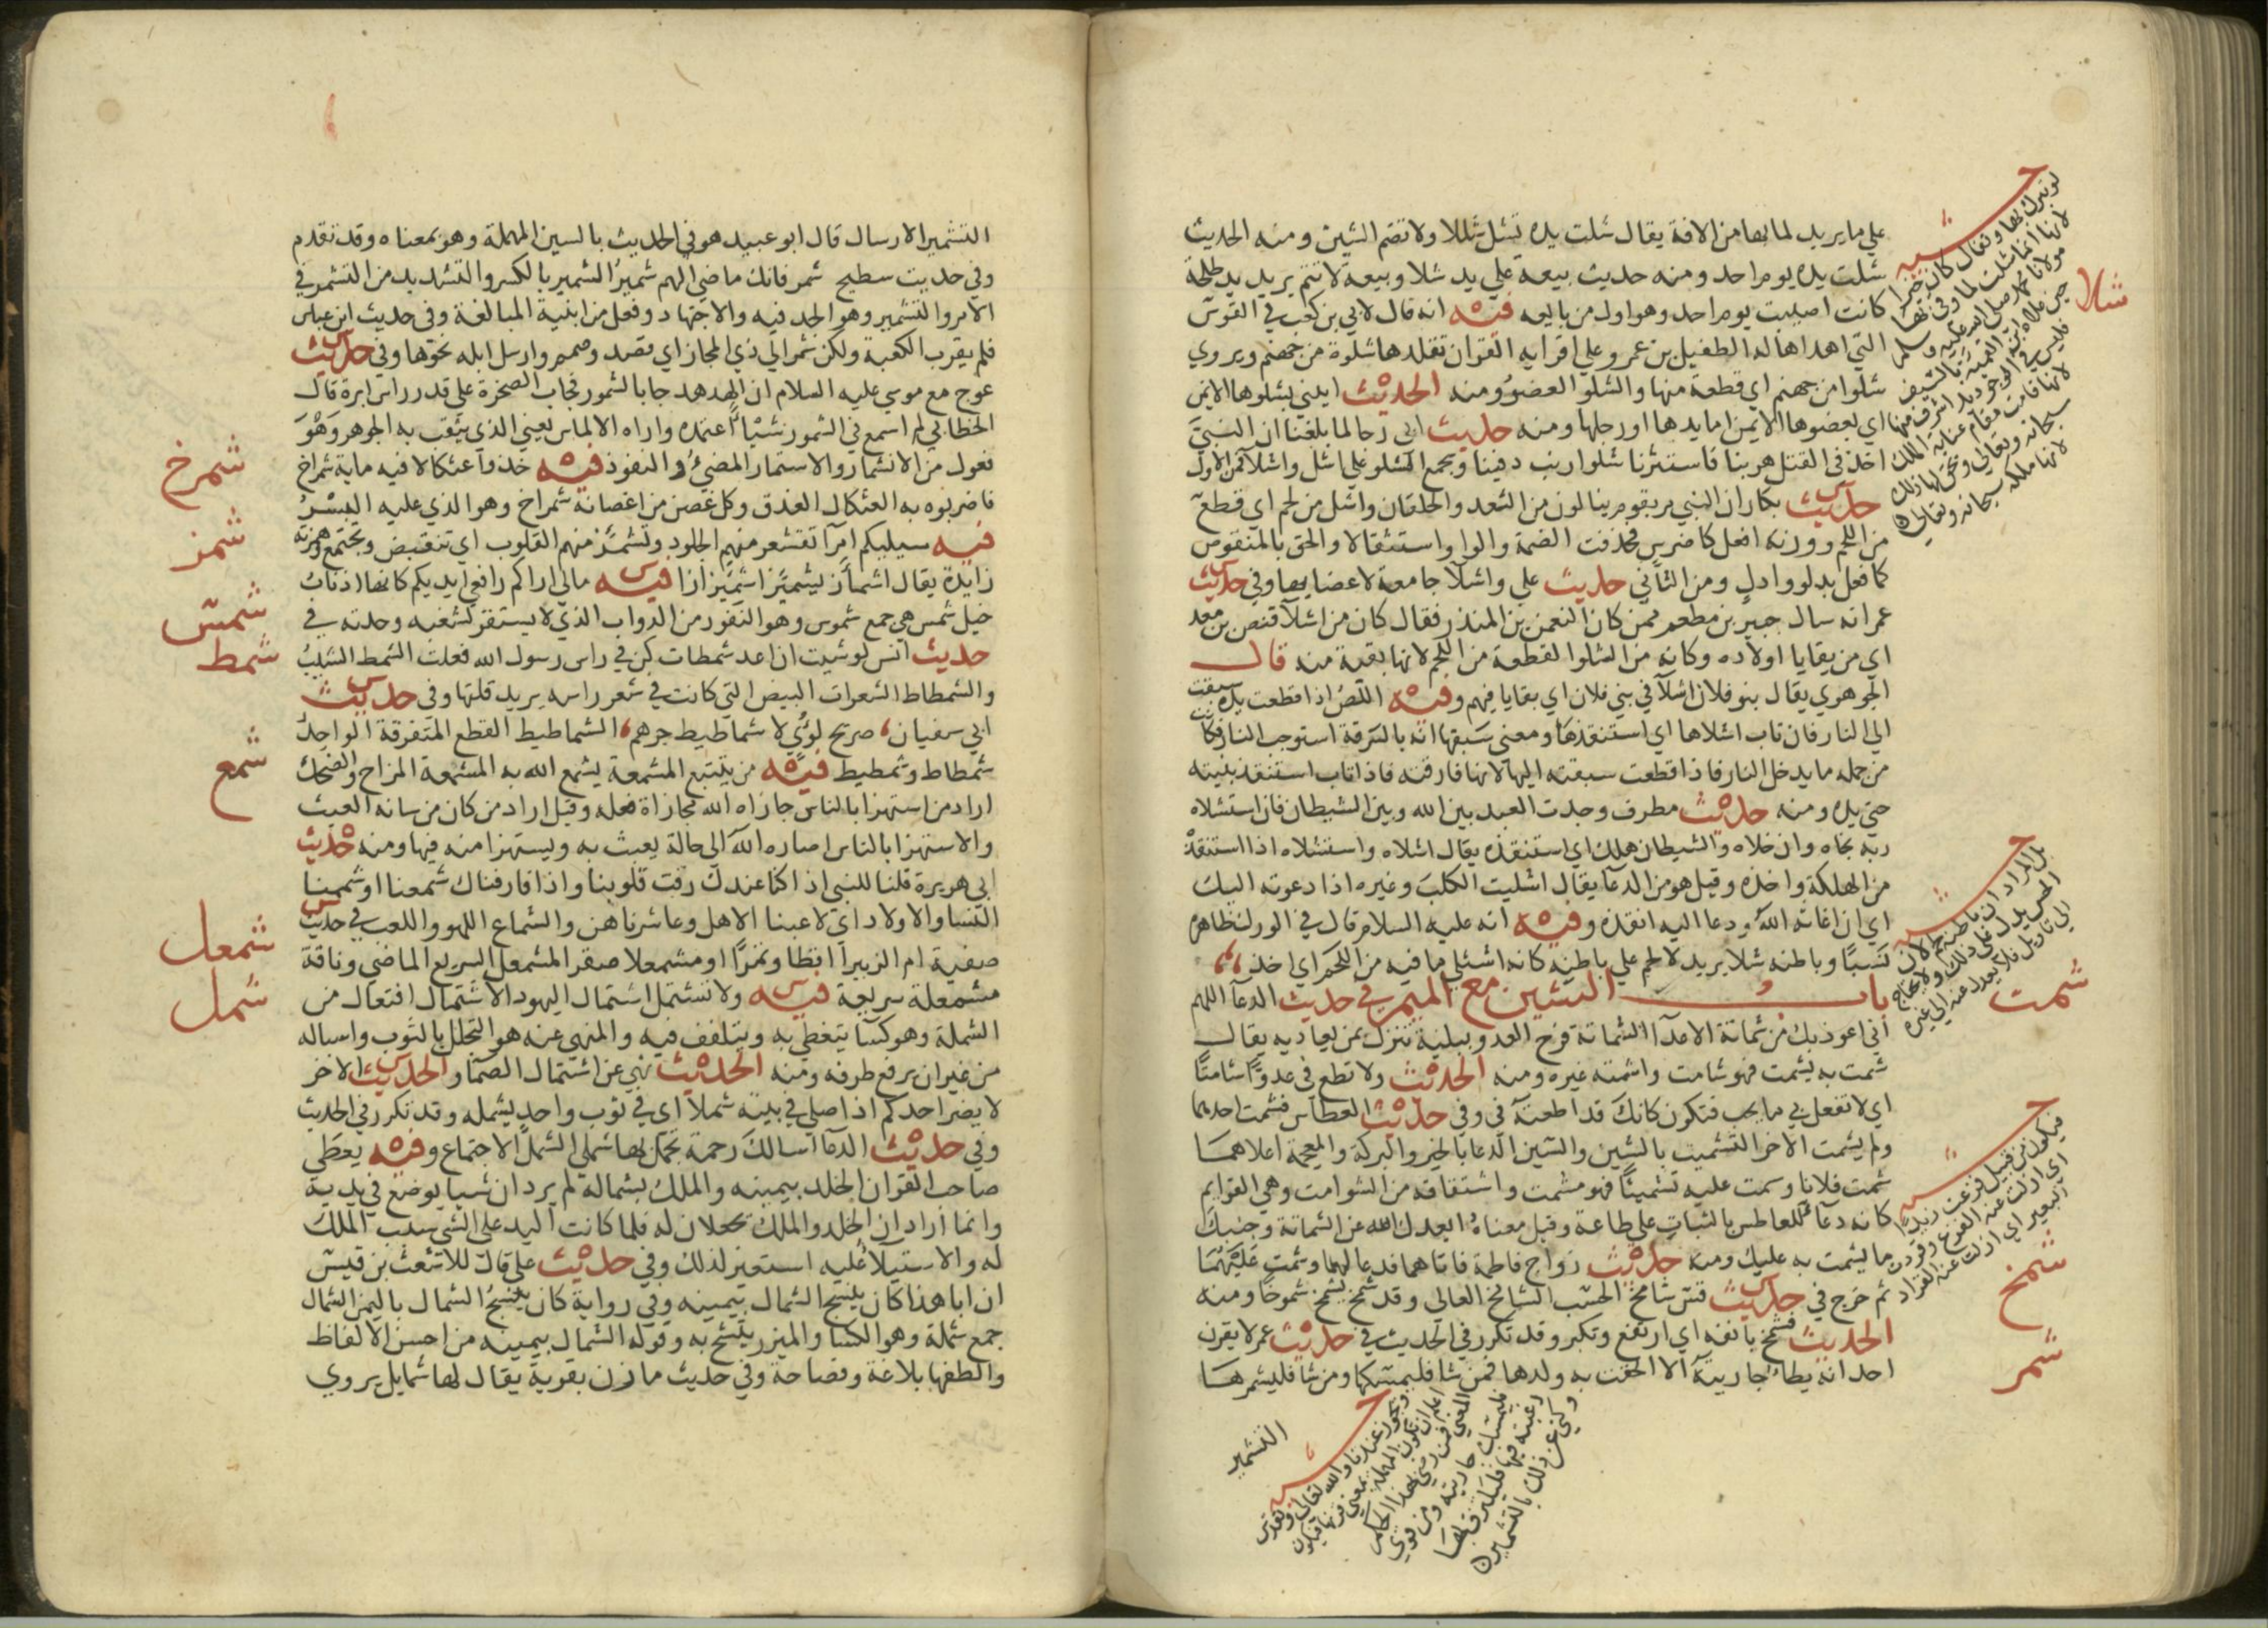 على ما يريد لما بها من الافة يقال شلت يده تشل شللا ولا تضم الشين ومنه الحديث
شلت يده يوم احد ومنه حديث بيعة علي يد شلا وبيعة لا تتم يريد يد طلحة
كانت اصيبت يوم احد وهو اول من بايعه فيه انه قال لابي بن كعب في القوس
التي اهداها له الطفيل بن عمرو على اقرايه القران تقلدها شلوة من جهنم ويروي
شلوا من جهنم اي قطعة منها والشلو العضو ومنه الحديث ايتني بشلوها الايمن
اي بعضوها الايمن اما يدها او رجلها ومنه حديث ابي رجا لما بلغنا ان النبي
اخذ في القتل هربنا فاستثرنا شلو ارنب دفينا وجمع الشلو على اشل واشلا فمن الاول
حديث بكار ان النبي مر بقوم ينالون من الثعد والحلقان واشل من لحم اي قطع
من اللحم ووزنه افعل كاضرس فحذفت الضمة والواو استثقالا والحق بالمنقوص
كما فعل بدلو وادل ومن الثاني حديث علي واشلا جامعة لاعضايها وفي حديث
عمر انه سال جبير بن مطعم ممن كان النعمن بن المنذر فقال كان من اشلا قنص بن معد
اي من بقايا اولاده وكانه من الشلو القطعة من اللحم لانها بقية منه قال
الجوهري يقال بنو فلان اشلا في بني فلان اي بقايا فيهم وفيه اللص اذا قطعت يده سبقت
الى النار فان تاب اشتلاها اي استنقذها ومعنى سبقها انه بالسرقة استوجب النار فكانت
من جمله ما يدخل النار فاذا قطعت سبقته اليها لانها فارقته فاذا تاب استنقذ بنيته
حتى يده ومنه حديث مطرف وجدت العبد بين الله وبين الشيطان فان استشلاه
ربه نجاه وان خلاه والشيطان هلك اي استنقذه يقال اشلاه واستشلاه اذا استنقذ
من الهلكة واخذه وقيل هو من الدعا يقال اشليت الكلب وغيره اذا دعوته اليك
اي ان اغاثه الله ودعا اليه انقذه وفيه انه عليه السلام قال في الورك ظاهره
نسا وباطنه شلا يريد لا لحم على باطنه كانه اشتلي ما فيه من اللحم اي اخذ
باب الشين مع الميم في حديث الدعا اللهم
اني اعوذ بك من شماتة الاعدا الشماتة فرح العدو ببلية تنزل بمن يعاديه يقال
شمت به يشمت فهو شامت واشمته غيره ومنه الحديث ولا تطع في عدوا شامتا
اي لا تفعل بي ما يحب فتكون كانك قد اطعته في وفي حديث العطاس فشمت احدهما
ولم يشمت الاخر التشميت بالشين والسين الدعا بالخير والبركة والمعجمة اعلاهما
شمت فلانا وشمت عليه تشميتا فهو مشمت واشتقاقه من الشوامت وهي القوايم
كانه دعا للعاطس بالثبات على طاعة وقيل معناه ابعدك الله عن الشماتة وجنبك
ما يشمت به عليك ومنه حديث زواج فاطمة فاتاهما فدعا لهما وشمت عليهما
ثم خرج في حديث قس شامخ الحسب الشامخ العالي وقد شمخ يشمخ شموخا ومنه
الحديث فشمخ بانفه اي ارتفع وتكبر وقد تكرر في الحديث في حديث عمر لا يقرن
احد انه يطا جاريته الا الحقت به ولدها فمن شا فليمسكها ومن شا فليشمرها
التشمير
شلا
شمت
شمخ
شمر
التشمير الارسال قال ابو عبيد هو في الحديث بالسين المهملة وهو بمعناه وقد تقدم
وفي حديت سطيح شمر فانك ماضي الهم شمير الشمير بالكسر والتشديد من التشمر في
الامر والتشمير وهو الجد فيه والاجتهاد وفعل من ابنية المبالغة وفي حديث ابن عباس
فلم يقرب الكعبة ولكن شمر الى ذي المجاز اي قصد وصمم وارسل ابله نحوها وفي حديث
عوج مع موسي عليه السلام ان الهدهد جا بالشمور فجاب الصخرة على قدر راس ابرة قال
الخطابي لم اسمع في الشمور شيا اعتمده واراه الالماس يعني الذي يثقب به الجوهر وهو
فعول من الانشمار والاستمار المضي والنفوذ فيه خذوا عثكالا فيه ماية شمراخ
فاضربوه به العثكال العذق وكل غصن من اغصانه شمراخ وهو الذي عليه البسر
فيه سيليكم امرا تقشعر منهم الجلود وتشمئز منهم القلوب اي تنقبض وتجتمع وهمزته
زايدة يقال اشمأز يشمئز اشميزازا فيه مالي اراكم رافعي ايديكم كانها اذناب
خيل شمس هي جمع شموس وهو النفور من الدواب الذي لا يستقر لشغبه وحدته في
حديث انس لو شيت ان اعد شمطات كن في راس رسول الله فعلت الشمط الشيب
والشمطاط الشعرات البيض التي كانت في شعر راسه يريد قلتها وفي حديث
ابي سفيان صريح لؤي لا شماطيط جرهم الشماطيط القطع المتفرقة الواحد
شمطاط وشمطيط فيه من يتتبع المشمعة يشمع الله به المشمعة المزاح والضحك
اراد من استهزا بالناس جازاه الله مجازاة فعله وقيل اراد من كان من شانه العبث
والاستهزا بالناس اصاره الله الى حالة يعبث به ويستهزا منه فيها ومنه حديث
ابي هريرة قلنا للنبي اذا كنا عندك رقت قلوبنا واذا فارقناك شمعنا او شممنا
النسا والاولاد اي لاعبنا الاهل وعاشرناهن والشماع اللهو واللعب في حديث
صفية ام الزبير اقطا وتمرا او مشمعلا صقرا المشمعل السريع الماضي وناقة
مشمعلة سريعة فيه ولا تشتمل اشتمال اليهود الاشتمال افتعال من
الشملة وهو كسا يتغطي به ويتلفف فيه والمنهي عنه هو التجلل بالثوب واسباله
من غير ان يرفع طرفه ومنه الحديث نهي عن اشتمال الصما والحديث الاخر
لا يضر احدكم اذا صلي في بيته شملا اي في ثوب واحد يشمله وقد تكرر في الحديث
وفي حديث الدعا اسالك رحمة تجمع بها شملي الشمل الاجتماع وفيه يعطي
صاحب القران الخلد بيمينه والملك بشماله لم يرد ان شيا يوضع في يديه
وانما اراد ان الخلد والملك يجعلان له فلما كانت اليد على الشي سبب الملك
له والاستيلا عليه استعير لذلك وفي حديث علي قال للاشعث بن قيس
ان ابا هذا كان ينسج الشمال بيمينه وفي رواية كان ينسج الشمال باليمن الشمال
جمع شملة وهو الكسا والميزر يتشح به وقوله الشمال بيمينه من احسن الالفاظ
والطفها بلاغة وفصاحة وفي حديث مازن بقرية يقال لها شمايل يروي
شمرخ
شمز
شمس
شمط
شمع
شمعل
شمل